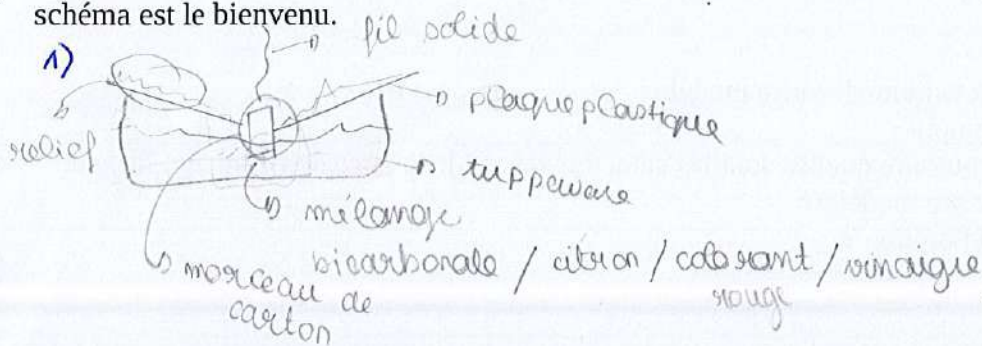 schéma est le bienvenu.
1)
fil solide
plaque plastique
relief
tuppaware
mélange
bicarbonate / citron / colorant / vinaigre
rouge
morceau de
carton